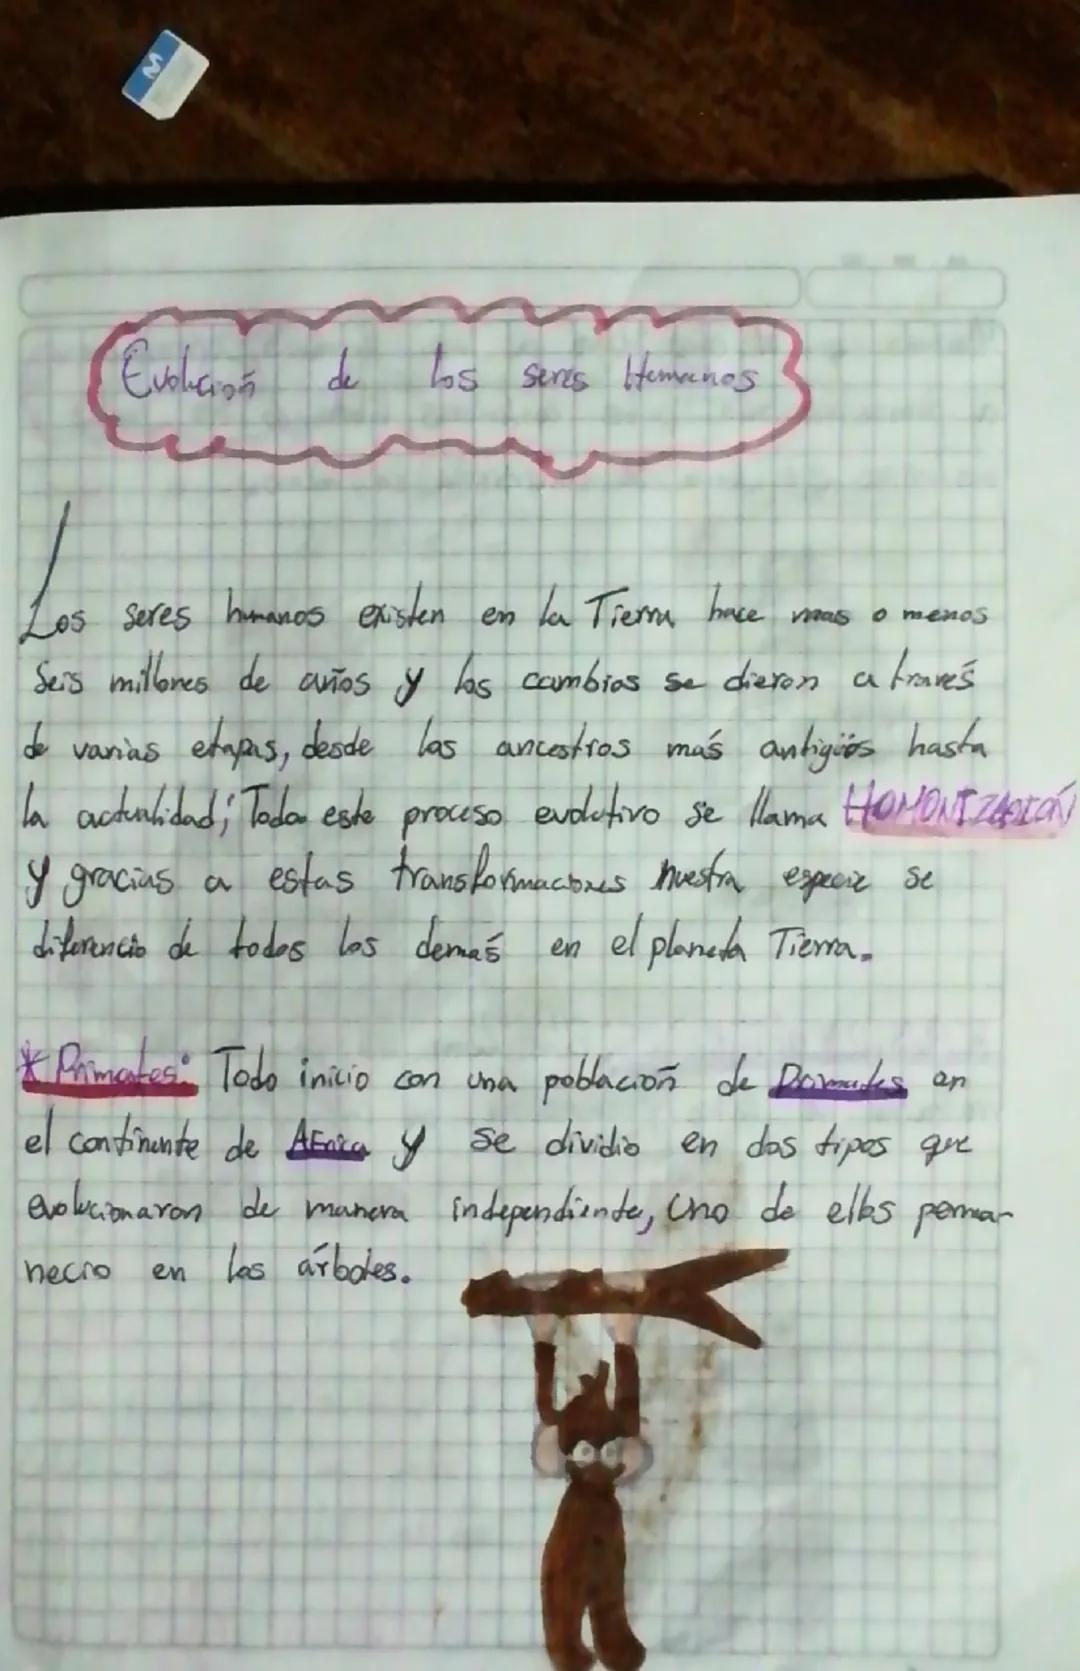 M
Evolución de los seres Humanos
Los seres humanos existen en la Tierra hace mas o menos
Seis millones de años y los cambios se dieron a través
de varias etapas, desde los ancestros más antigüos hasta
la actualidad; Todo este proceso evolutivo se llama HOMONIZACIÓN
y gracias a estas transformaciones nuestra especie se
diferencio de todos los demás en el planeta Tierra.
* Primates: Todo inicio con una población de Primates en
el continente de AFrica y se dividio en dos tipos que
evolucionaron de manera independiente, Uno de ellos perma-
necio en los árboles.